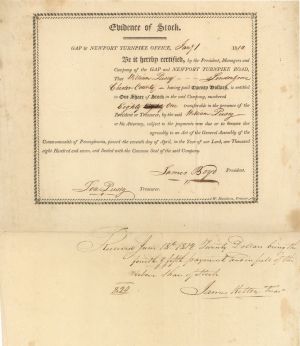 Evidence of Stock.
GAP & NEWPORT TURNPIKE OFFICE, Jan'y 1 1810
Be it hereby certified, by the President, Managers and
Company of the GAP and NEWPORT TURNPIKE ROAD,
That William Pusey
Chester County having paid Twenty Dollars, is entitled
to One Share of Stock in the said Company, numbered
Eighty One transferable in the presence of the
President or Treasurer, by the said William Pusey
or his Attorney, subject to the payments now due or to become due
agreeably to an Act of the General Assembly of the
Commonwealth of Pennsylvania, passed the seventh day of April, in the Year of our Lord, one Thousand
Eight Hundred and seven, and Sealed with the Common Seal of the said Company.
James Boyd President.
Pusey Treasurer.
Received June 18th Twenty Dollars being the
fourth & fifth payment and in full of the
within Share of Stock
$20
James